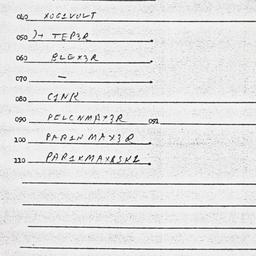 040 XOG1VOLT
050 )+ TEP3R
060 BLGX3R
070 —
080 C1NR
090 PELCNMAX3R 091
100 PAR1NMAX3R
110 PAR1XMAXR3N2